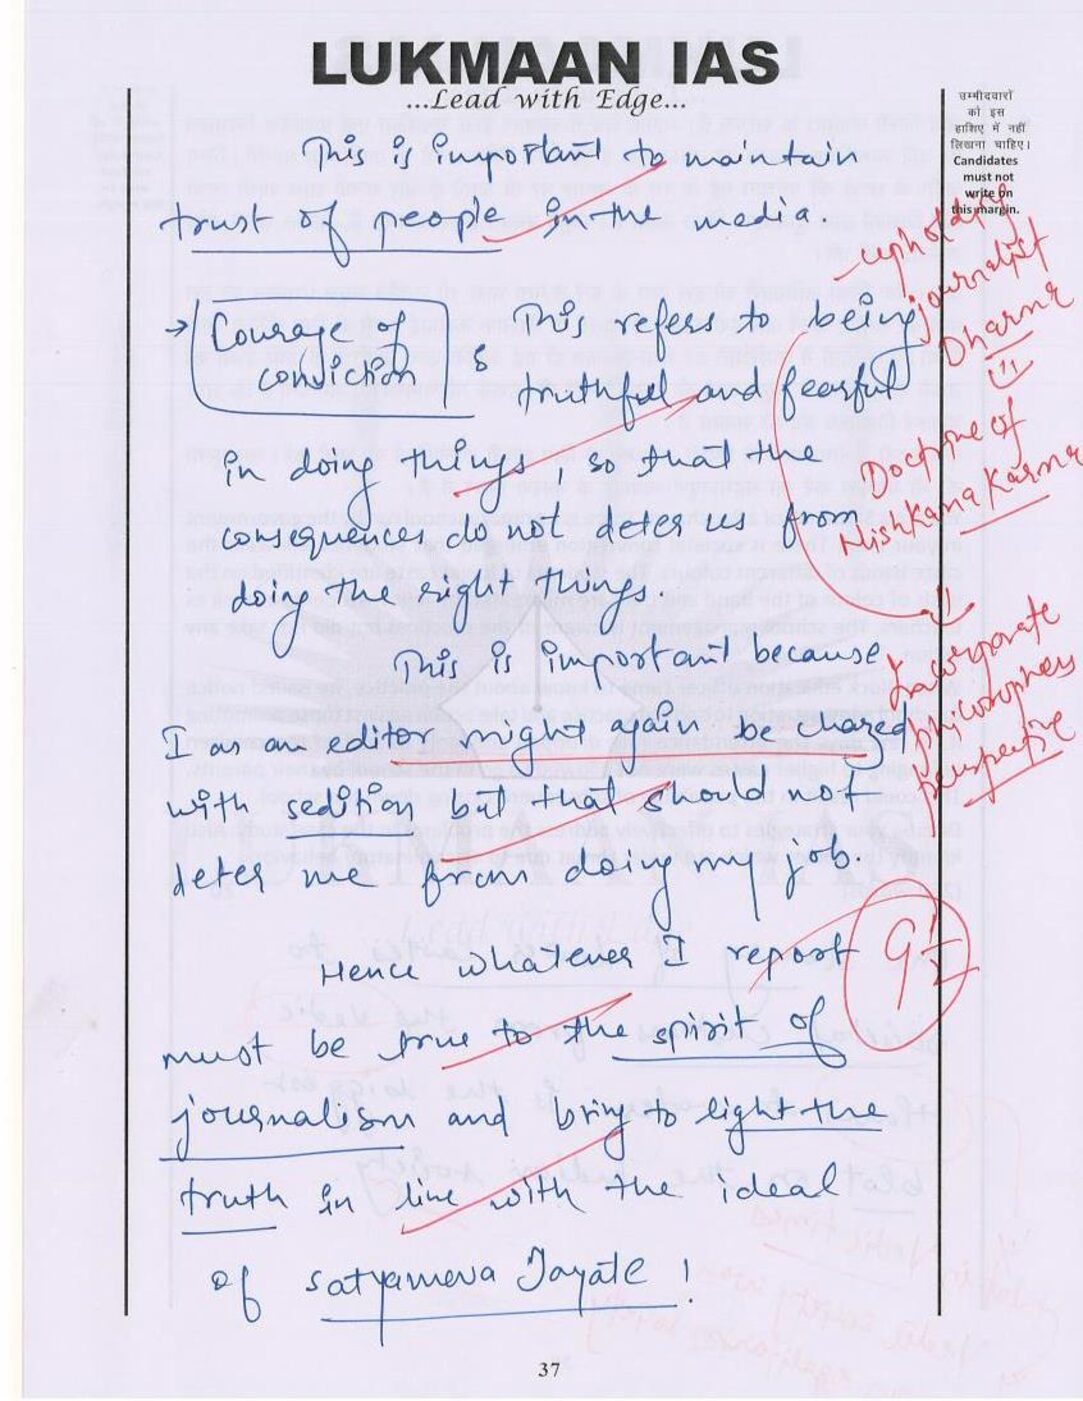 LUKMAAN IAS
...Lead with Edge...
उम्मीदवारों
को इस
हाशिए में नहीं
लिखना चाहिए।
Candidates
must not
write on
this margin.
This is important to maintain
trust of people in the media
- upholding
journalist
Dharma
→ Courage of
conviction : This refers to being
truthful and fearful
in doing things, so that the
consequences do not deter us from
doing the right things.
Doctrine of
Nishkama Karma
This is important because
I as an editor might again be charged
with sedition but that should not
deter me from doing my job.
philosophers
perspective
Hence whatever I report
9½
must be true to the spirit of
journalism and bring to light the
truth in line with the ideal
of satyameva Jayate !
37